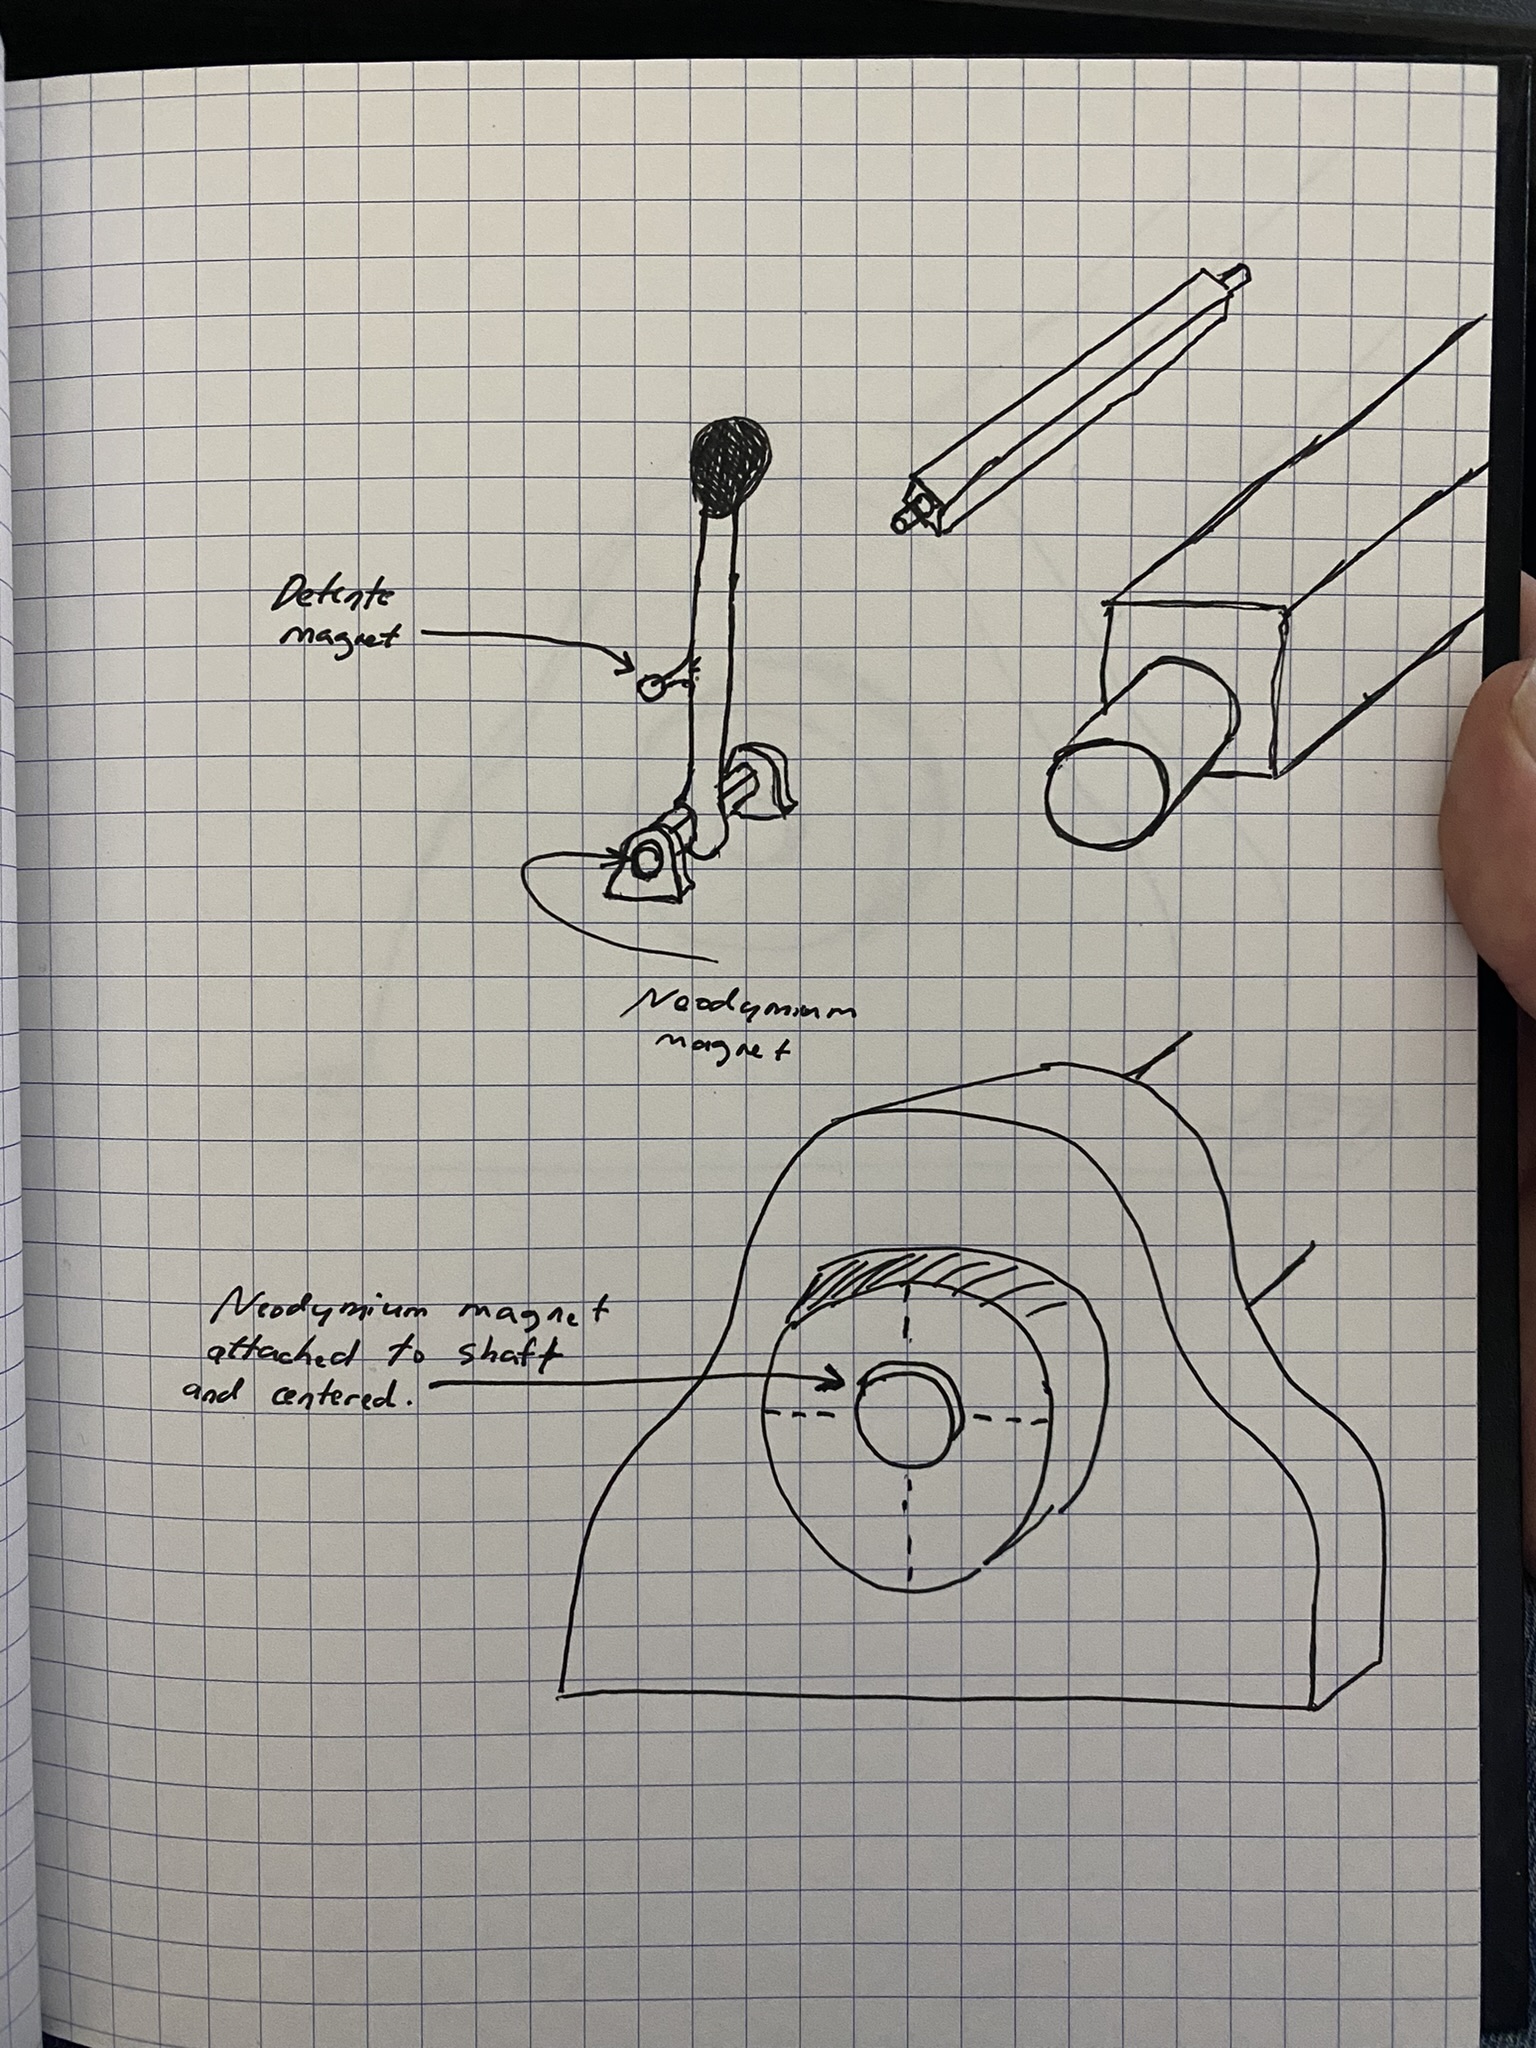 Detente
magnet
Neodymium
magnet
Neodymium magnet
attached to shaft
and centered.